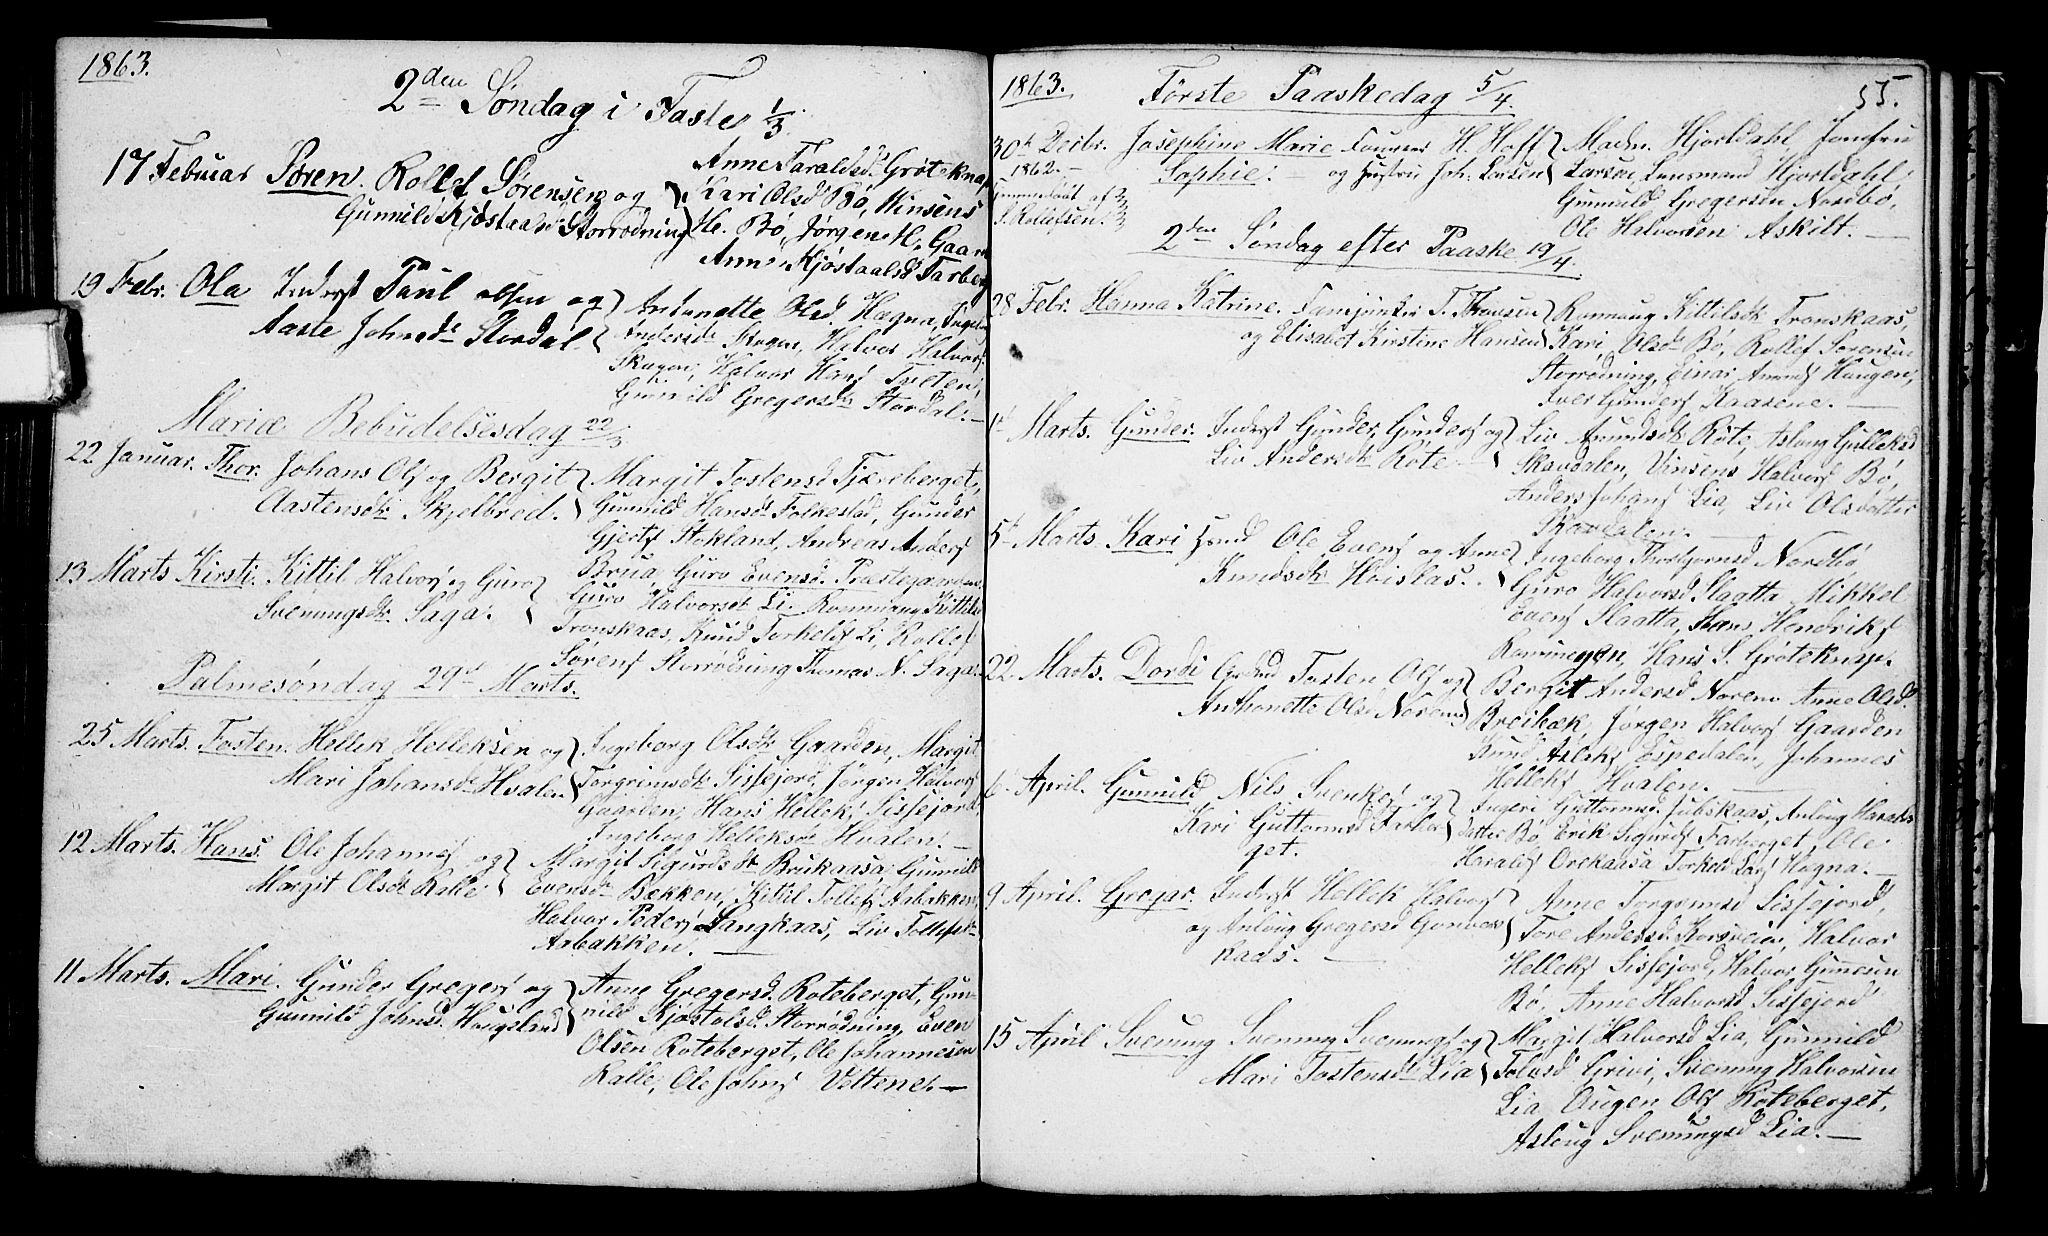 1863.
2den Søndag i Faste 1/3.
17 Februar Søren. Rollef Sørensen og
Gunnild Kjøstaalsd Storrødning
Anne Taraldsd. Grøteknap
Kari Olsd Bø, Winsens
He. Bø, Jørgen H. Gaarn
Anne Kjøstaalsd Tarberg
19 Febr. Ola Inderst Paul olsen og
Aaste Johnsdr Stordal.
Antonette Olsd. Hægna,
Andersdr Skogen, Halvor Halvors
Skogen, Halvor Hans Treten,
Gunnild Gregersdr Stordal. —
Mariæ Bebudelsesdag 22/3
22 Januar. Thor. Johans Ols og Bergit
Aastensdtr Skjelbred.
Margit Tostensd Tjæreberget,
Gunnild Hansdr Folkestad, Gunder
Gjerts Stokland, Andreas Anders
Brua, Guro Evensd. Præstegaarden
13 Marts Kirsti. Kittil Halvors og Guro
Sveningsdtr Saga.
Guro Halvorsdt Li. Rønnaug Kittilsd
Tronskaas, Knud Torkelds Li, Rollef
Sørens Storrødning Thomas N. Saga.
Palmesøndag 29d Marts.
25 Marts. Tosten. Hellek Helleksen og
Mari Johansdr Hvalen
Ingeborg Olsdtr Gaarden, Margit
Torgrimsdtr Sissejord, Jørgen Halvors
Gaarden, Hans Helleks Sissejord,
Ingeborg Helleksdr Hvalen. —
12 Marts. Hans. Ole Johannes og
Margit Olsdtr
Margit Sigurdsdr Brukaasa, Gunnild
Evensdr Bækken, Kittil Tollefs Aabakken
Halvor Peders Langkaas, Liv Tollefsdr
Aabakken. —
11 Marts. Mari. Gunder Gregers og
Gunnild Johnsd. Haugelund
Anne Gregersd. Roteberget, Gun-
nild Kjøstolsd. Storrødning, Even
Olsen Roteberget, Ole Johannesen
Kalle, Ole Johns Vettene. —
1863. Første Paaskedag 5/4. 55.
30t Decbr.
1862. —
S. Rollefsen.
Josephine Marie
Sophie. —
H. Hoff
og Hustru Joh. Larsen
Madm. Hjortdahl Jomfru
Larsen, Lensmand Hjortdahl
Gunnild Gregersen Nordbø,
Ole Halvorsen Askilt. —
2den Søndag efter Paaske 19/4.
28 Febr. Hanna Katrine.
og Elisabet Kirstine Hansen
Rønnaug Kittilsdtr Tronskaas,
Kari Olsdr Bø, Rollef Sørensen
Storrødning, Einar Amunds Haugen,
Iver Gunders Kaasene. —
1t Marts. Gunder. Inderst Gunder Gunders og
Liv Andersdtr Røte. —
Liv Amundsdtr Røte, Aslaug Gulleksd
Skavdalen, Vinsens Halvors Bø,
Anders Johans Lia, Liv Olsdatter
Skavdalen. —
5t Marts. Kari Hsmd Ole Evens og Anne
Knudsdtr Høislas.
Ingeborg Thorbjørnsd Nordbø
Guro Halvorsd. Slaatta Mikkel
Evens Slaatta, Hans Hendriks
Hans S. Grøteknap.
22. Marts. Dordi Grdmd Tosten Ols og
Anthonette Olsd Noreme
Bergit Andersd Noreme Anne Olsd.
Breibæk, Jørgen Halvors Gaarden
Knud Asleks Espedalen, Johannes
Helleks Hvalen. —
6t April. Gunnild Nils Svenkes og
Kari Guttormsd Farber
get.
Ingeri Guttormsd Jubskaas, Aslaug Haralds
datter Bø Erik Sigurds Farberget, Ole
Haralds Orekaasa Torkeld Lars Hægna. —
9 April. Gregar. Inderst Hellek Halvors
og Aslaug Gregersd
kaas. —
Anne Torgrimsd Sissejord,
Tore Andersd. Korsveien, Halvor
Helleks Sissejord, Halvor Gunnesen
Bø, Anne Halvorsd Sissejord
15 April Svening Svening Svenings og
Mari Tostensdr Lia
Margit Halvorsd Lia, Gunnild
Tolvsd Grivi, Svening Halvorsen
Lia Augen Ols Roteberget,
Aslaug Sveningsd Lia. —